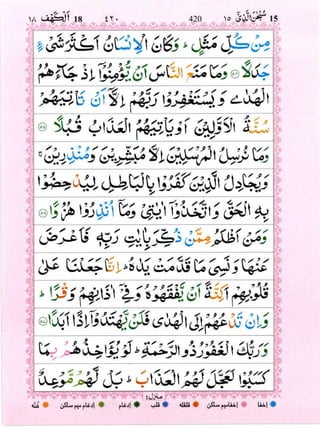 ١٨ اَلْكَهْف 18 ٤٢٠ 420 سُبْحٰنَ الَّذِيْ ١٥ 15
مِنْ كُلِّ مَثَلٍ ؕ وَكَانَ الْاِنْسَانُ اَكْثَرَ شَیْءٍ
جَدَلًا ﴿۵۴﴾ وَمَا مَنَعَ النَّاسَ اَنْ یُّؤْمِنُوْۤا اِذْ جَآءَهُمُ
الْهُدٰی وَ یَسْتَغْفِرُوْا رَبَّهُمْ اِلَّاۤ اَنْ تَاْتِیَهُمْ
سُنَّةُ الْاَوَّلِیْنَ اَوْ یَاْتِیَهُمُ الْعَذَابُ قُبُلًا ﴿۵۵﴾
وَمَا نُرْسِلُ الْمُرْسَلِیْنَ اِلَّا مُبَشِّرِیْنَ وَمُنْذِرِیْنَ ۚ
وَیُجَادِلُ الَّذِیْنَ كَفَرُوْا بِالْبَاطِلِ لِیُدْحِضُوْا
بِهِ الْحَقَّ وَ اتَّخَذُوْۤا اٰیٰتِیْ وَمَاۤ اُنْذِرُوْا هُزُوًا ﴿۵۶﴾
وَمَنْ اَظْلَمُ مِمَّنْ ذُكِّرَ بِاٰیٰتِ رَبِّهٖ فَاَعْرَضَ
عَنْهَا وَنَسِیَ مَا قَدَّمَتْ یَدٰهُ ؕ اِنَّا جَعَلْنَا عَلٰی
قُلُوْبِهِمْ اَكِنَّةً اَنْ یَّفْقَهُوْهُ وَفِیْۤ اٰذَانِهِمْ وَقْرًا ؕ
وَاِنْ تَدْعُهُمْ اِلَی الْهُدٰی فَلَنْ یَّهْتَدُوْۤا اِذًا اَبَدًا ﴿۵۷﴾
وَرَبُّكَ الْغَفُوْرُ ذُو الرَّحْمَةِ ؕ لَوْ یُؤَاخِذُهُمْ بِمَا
كَسَبُوْا لَعَجَّلَ لَهُمُ الْعَذَابَ ؕ بَلْ لَّهُمْ مَّوْعِدٌ
منزل ٤
اخفا اخفا میم ساکن قلقله قلب ادغام ادغام میم ساکن غنّه